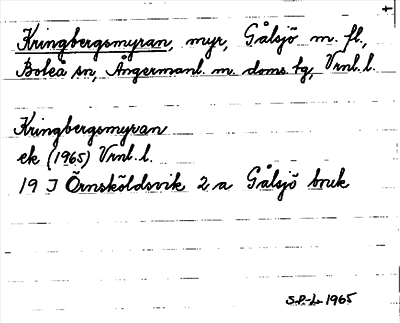 Kringbergsmyran, myr, Gålsjö m. fl.,
Boteå sn, Ångermanl. m. doms. tg, Vrnl. l.
Kringbergsmyran
ek (1965) Vrnl. l.
19 J Örnsköldsvik 2 a Gålsjö bruk
S.P-L. 1965